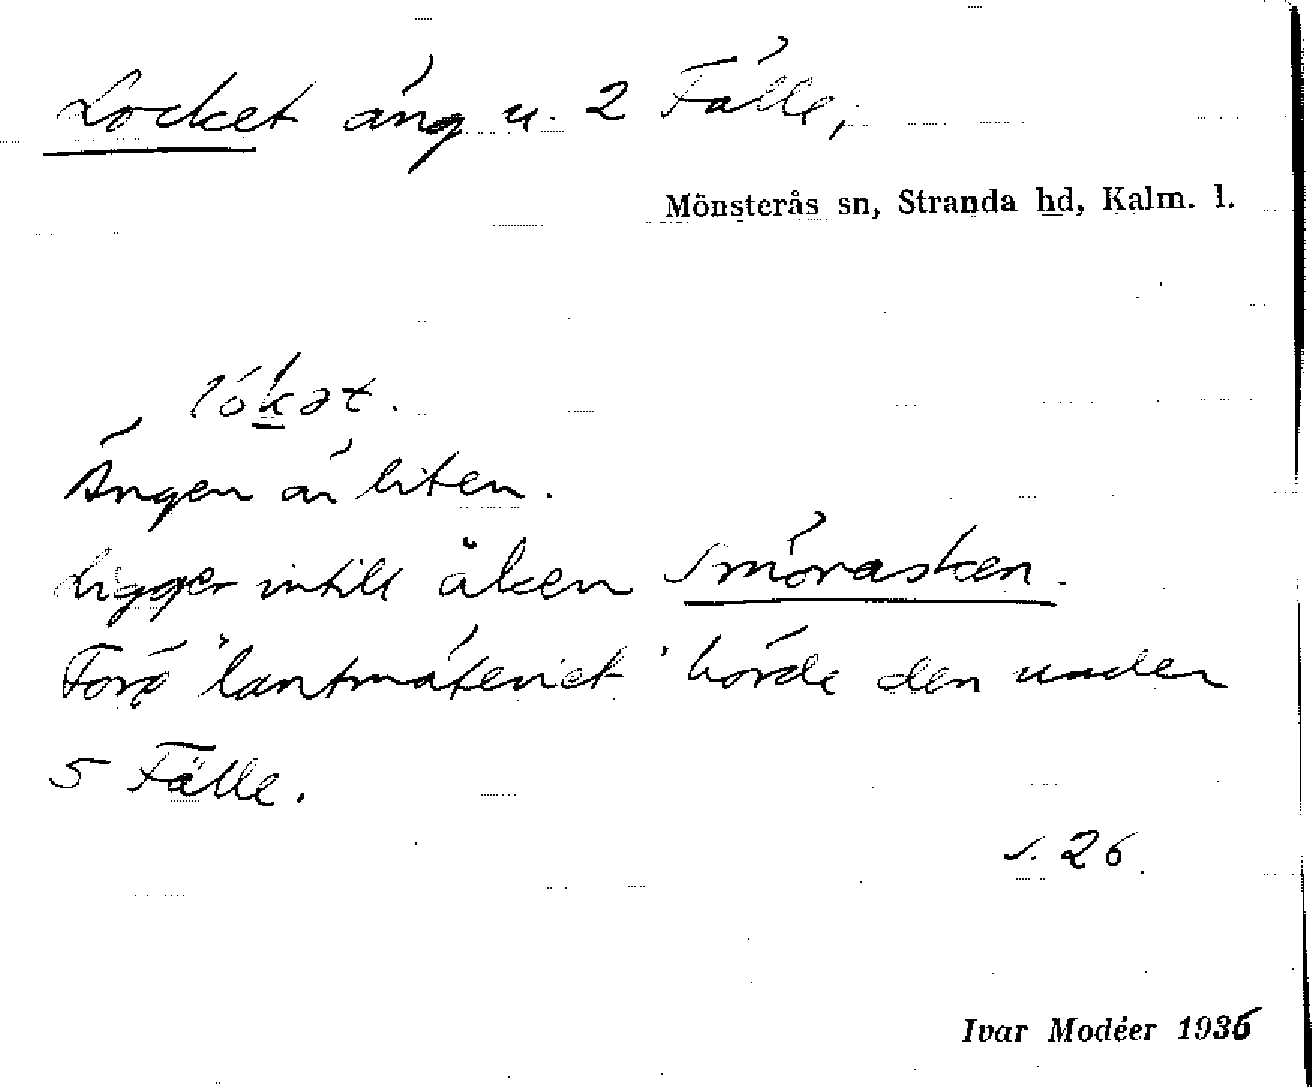 Locket äng u. 2 Fälle,
Mönsterås sn, Stranda hd, Kalm. l.
lókət.
Ängen är liten.
Ligger intill åken Smörasken.
Före "lantmäteriet" hörde den under
5 Fälle.
s. 26.
Ivar Modéer 1936